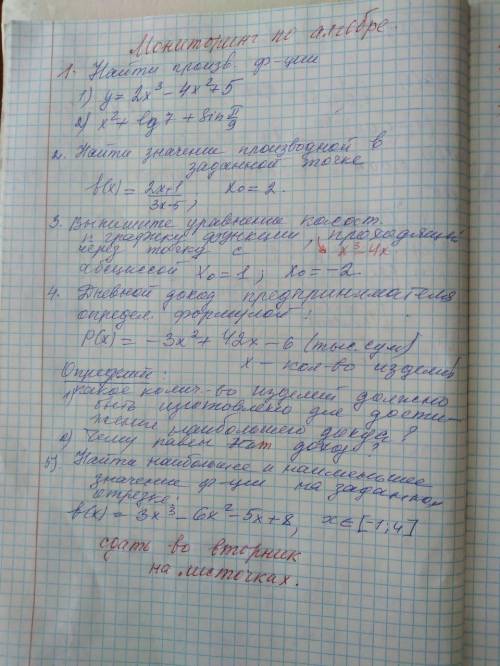 Мониторинг по алгебре.
1. Найти произв. ф-ции
1) y = 2x³ - 4x² + 5
2) x² + lg7 + sin π/9
2. Найти значение производной в
заданной точке
f(x) = (2x+1)/(3x-5), x₀ = 2.
3. Выпишите уравнение касат.
к графику функции, проходящей
через точку с x³ - 4x
абсциссой x₀ = 1; x₀ = -2
4. Дневной доход предпринимателя
определ. формулой:
P(x) = -3x² + 42x - 6 (тыс. сум)
x - кол-во изделий
Определит:
1) какое колич-во изделий должно
быть изготовлено для дости-
жения наибольшего дохода?
2) Чему равен этот доход?
5) Найти наибольшее и наименьшее
значение ф-ции на заданном
отрезке:
f(x) = 3x³ - 6x² - 5x + 8, x ∈ [-1; 4]
сдать во вторник
на листочках.